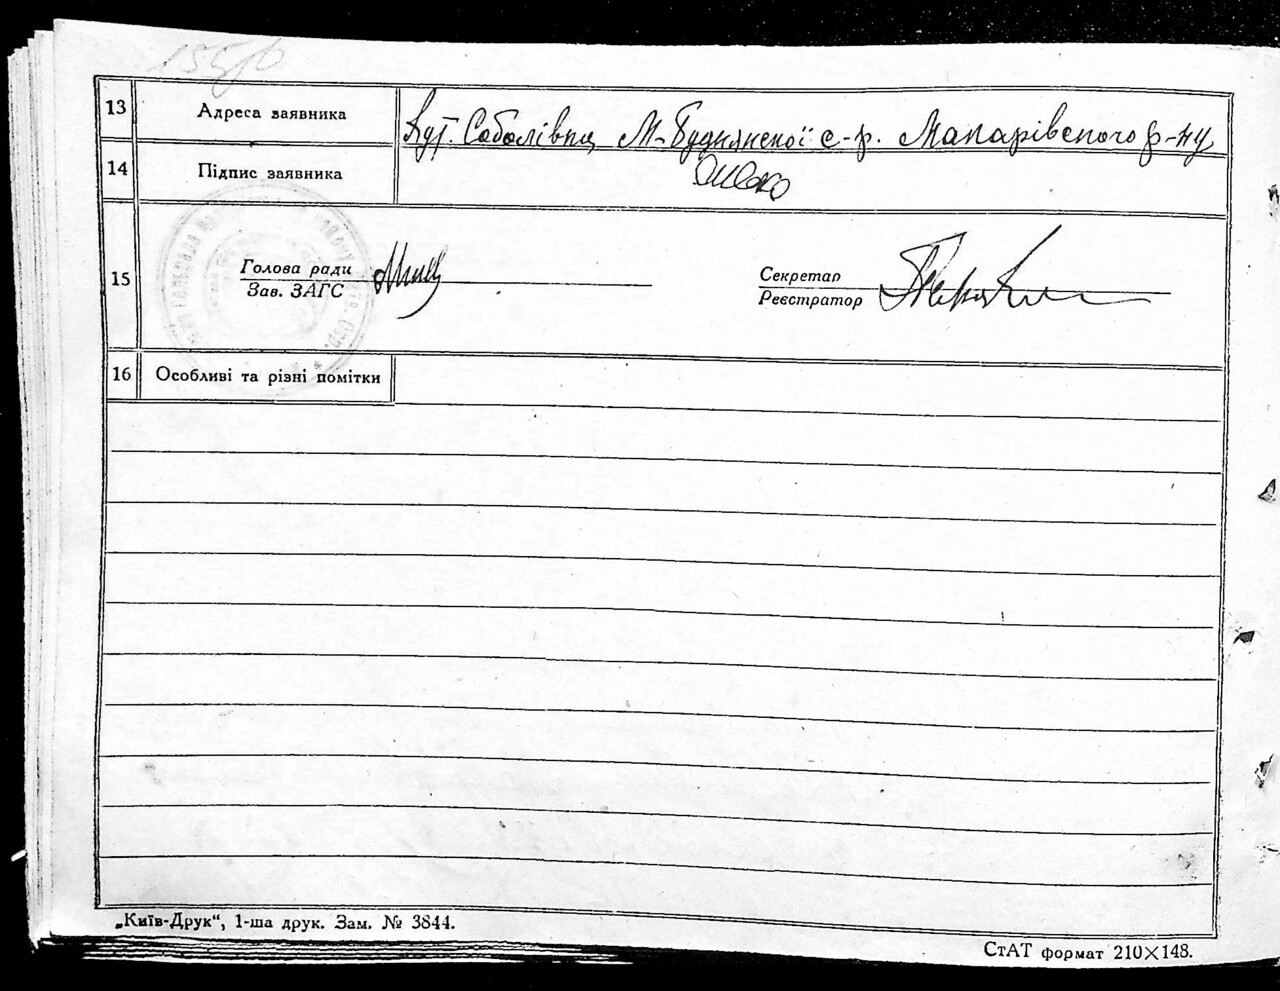 155об
13 Адреса заявника Хут. Соболівка М-Буднянської с-р. Макарівського р-ну
14 Підпис заявника
15 Голова ради Секретар
Зав. ЗАГС Реєстратор
16 Особливі та різні помітки
„Київ-Друк“, 1-ша друк. Зам. № 3844.
СтАТ формат 210×148.